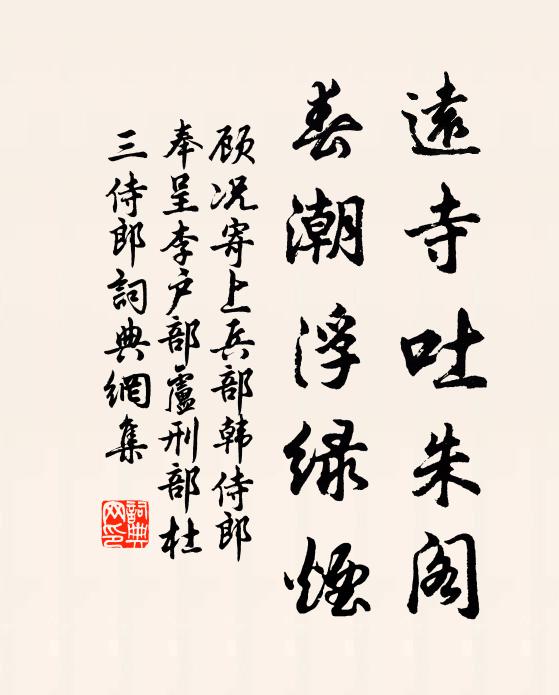 遠寺吐朱阁
春潮浮緑煙
顾况寄上兵部韩侍郎
奉呈李户部盧刑部杜
三侍郎詞典網集
詞典网印